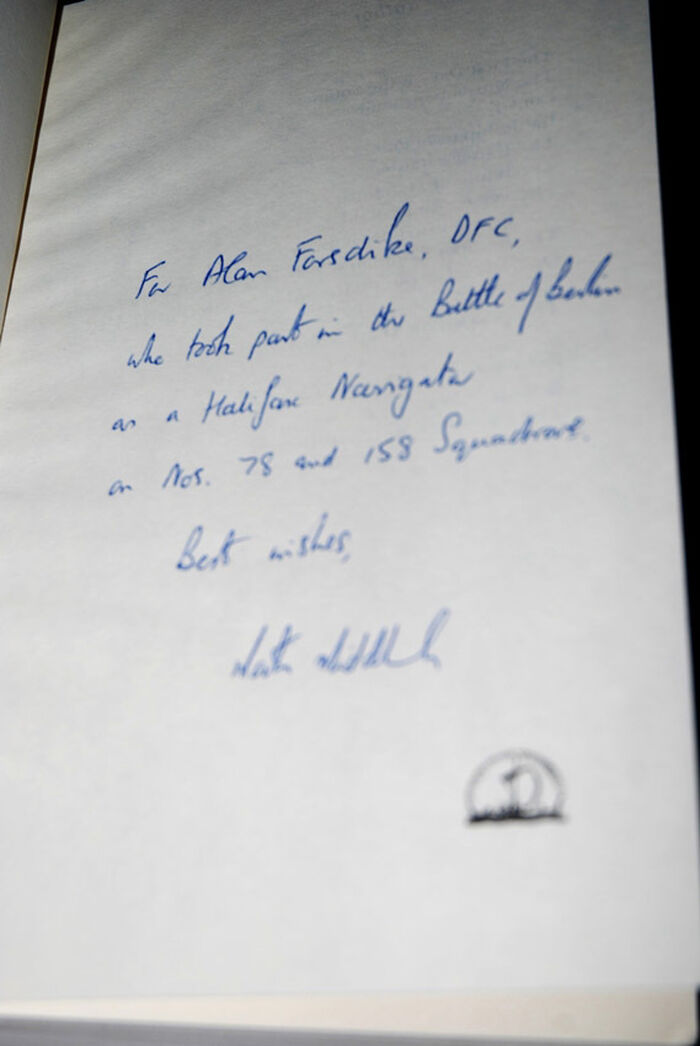 For Alan Forsdike, DFC,
who took part in the Battle of Berlin
as a Halifax Navigator
on Nos. 78 and 158 Squadrons.
Best wishes,
Martin Middlebrook